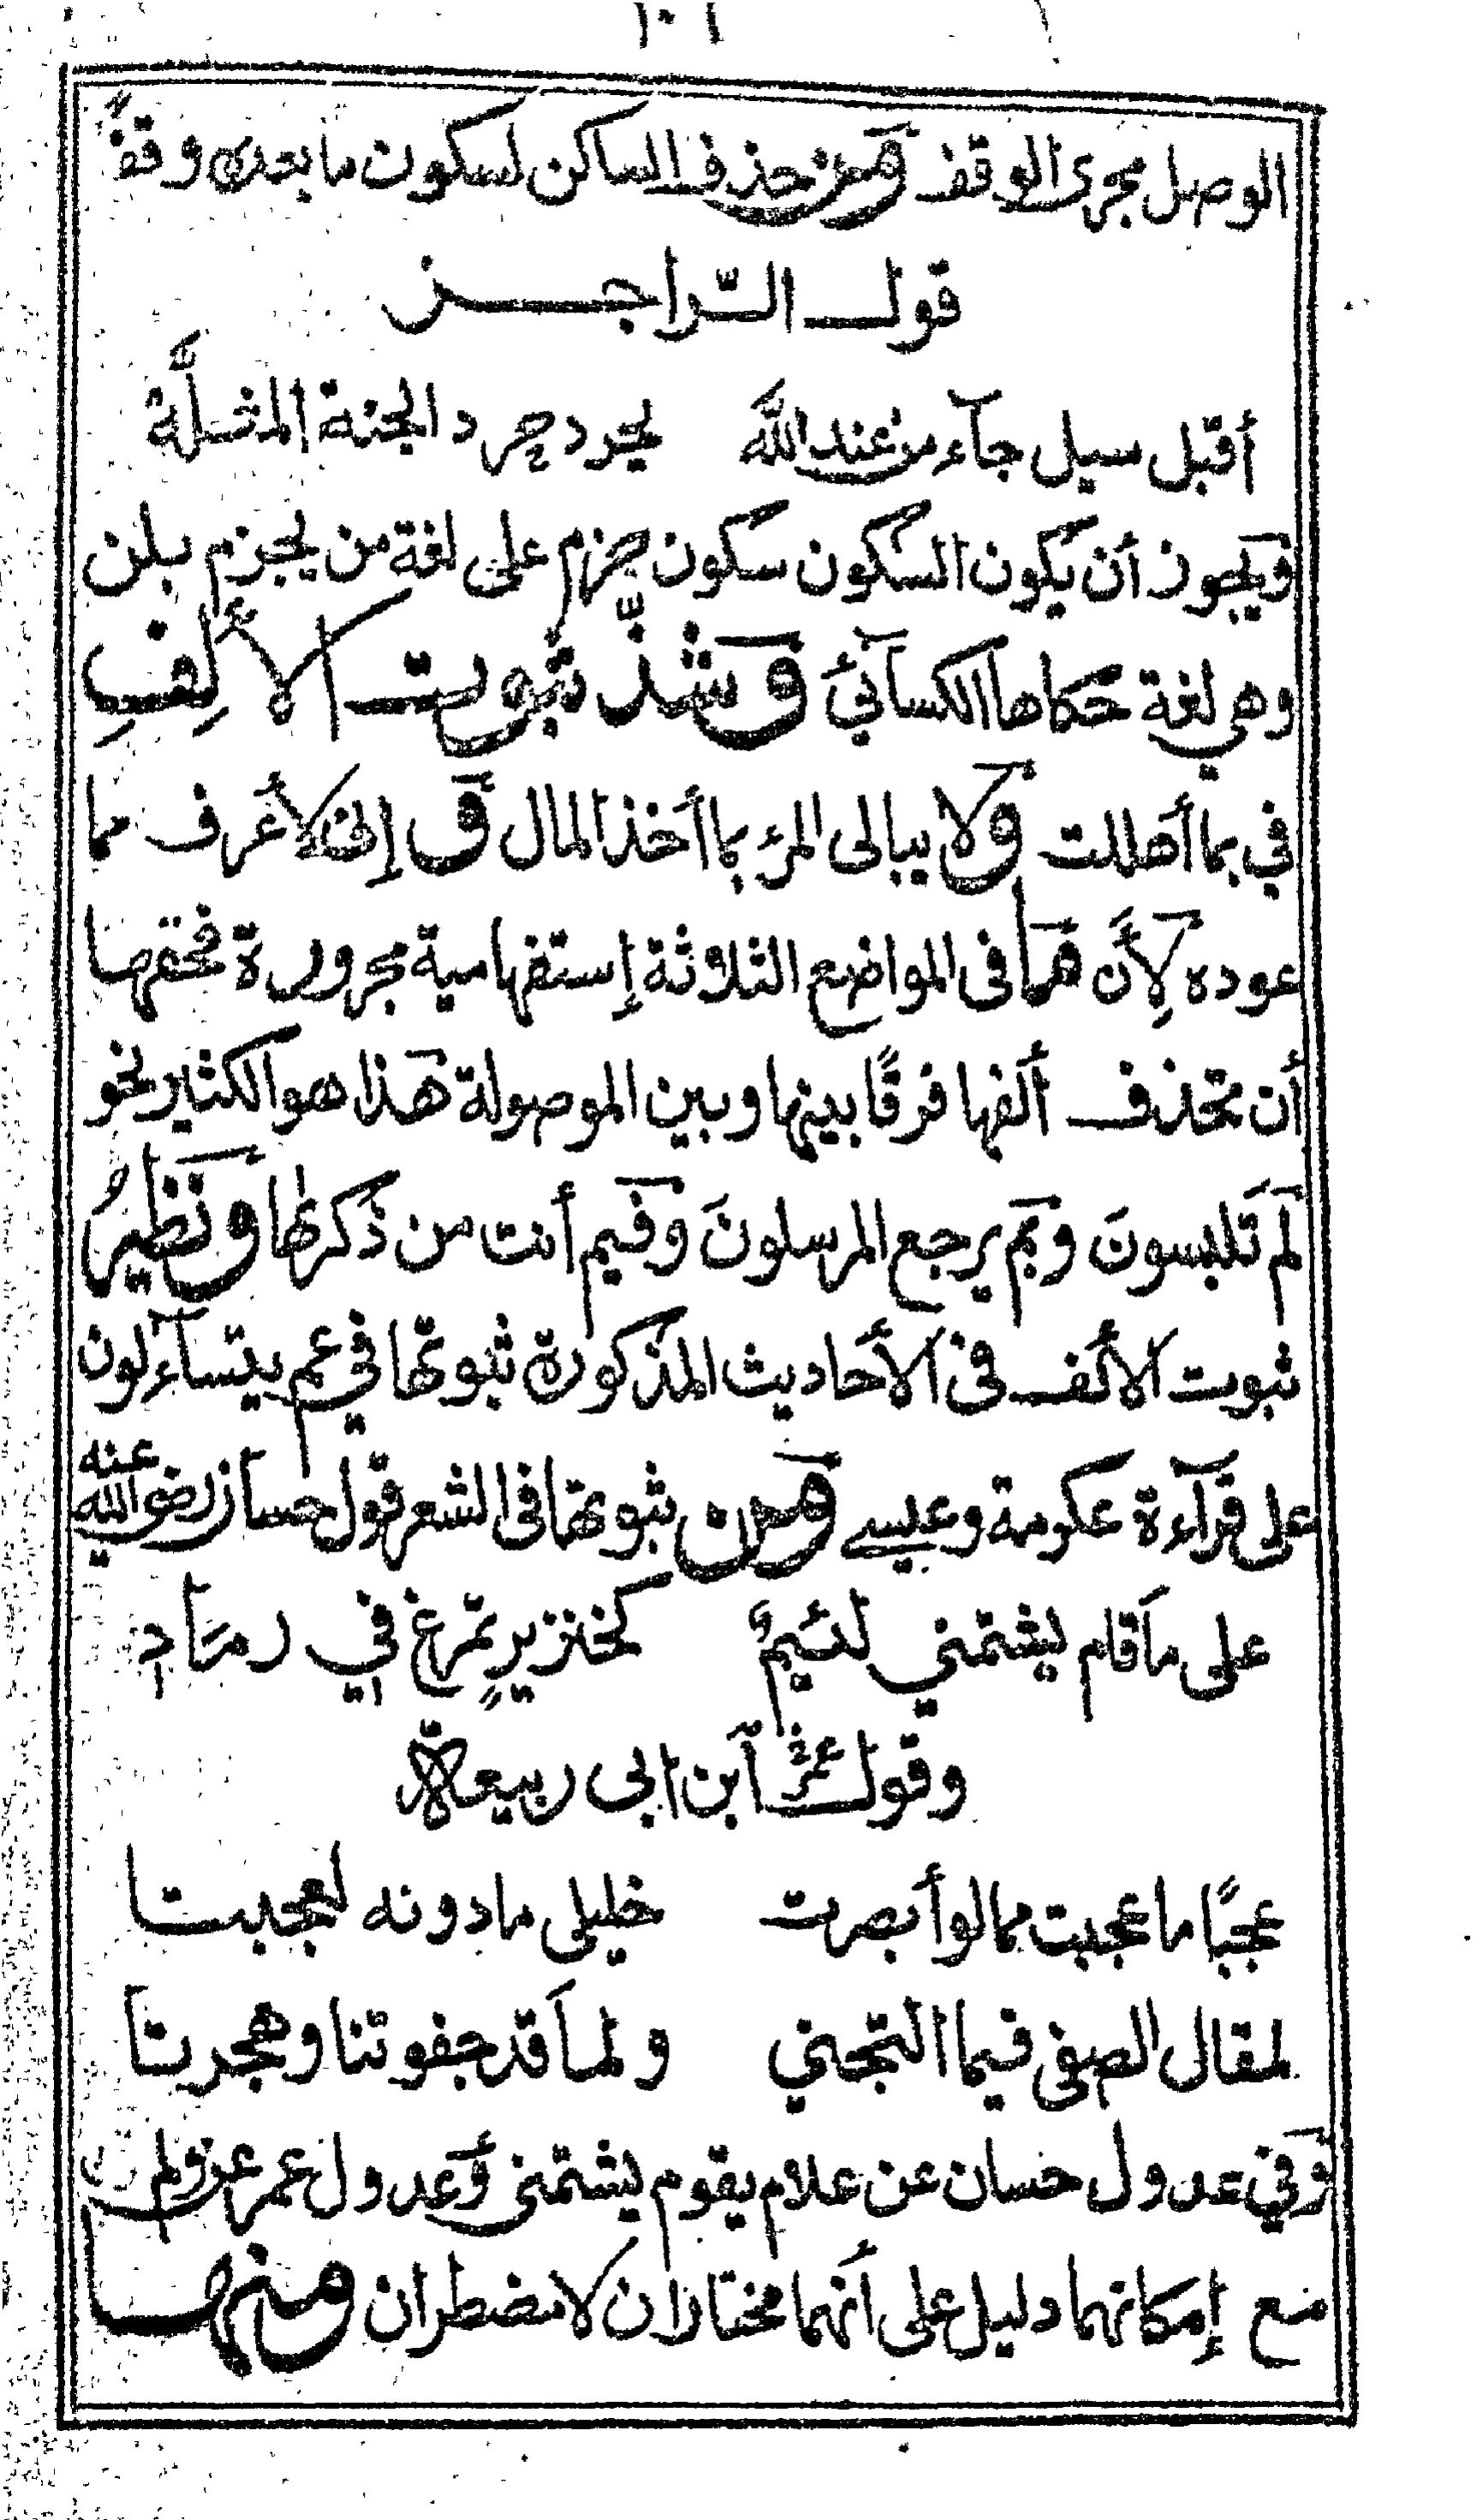 ١٠١
الوصل مجرى الوقف ومن حذف الساكن لسكون ما بعده وقفًا
قول الرّاجز
أقبل سيل جآء من عند اللَّه يحرد حرد الجنة المثلَّة
ويجوز أن يكون السكون سكون جزم على لغة من يجزم بلن
وهي لغة حكاها الكسآئي وشذّ ثبوت الأَلِفِ
في بما أهللت ولا يبالى المرء بما أخذ المال وإنى لأعرف مما
عوده لِأَن ما فى المواضع الثلاثة إستفهامية مجرورة فحقها
أن تحذف ألفها فرقًا بينها وبين الموصولة هذا هو الكثير نحو
لم تَلبسونَ وبم يرجع المرسلونَ وفيم أنت من ذكراها ونظيرُ
ثبوت الألف فى الأحاديث المذكورة ثبوتها في عم يتسآءلون
على قرآءة عكرمة وعيسى ومن ثبوتها فى الشعر قول حسان رضي الله عنه
على مَا قام يشتمني لئيمٌ كخنزيرٍ تمرغ في رمَادِ
وقول عمر ابن ابى ربيعة
عجبًا ما عجبت مما لو أبصرت خليلى ما دونه لعجبتا
لمقال الصفى فيما التجني ولمَا قد جفوتنا وهجرتا
وفي عدول حسان عن علام يقوم يشتمنى وعدول عمر عن ولم
مع إمكانهما دليل على أنهما مختاران لا مضطران ومنها